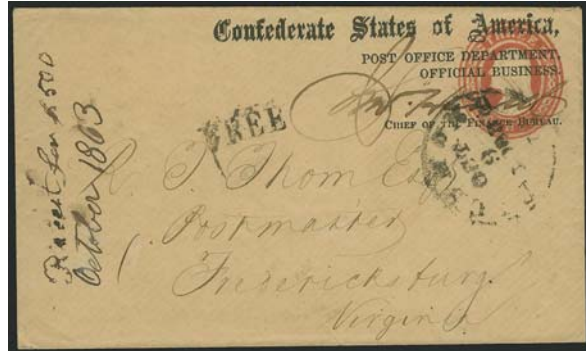 Confederate States of America,
POST OFFICE DEPARTMENT.
OFFICIAL BUSINESS.
CHIEF OF THE FINANCE BUREAU.
FREE
OCT
R. T. Thom Esq
Postmaster
Fredericksburg
Virginia
Receipt for $500
October 1863